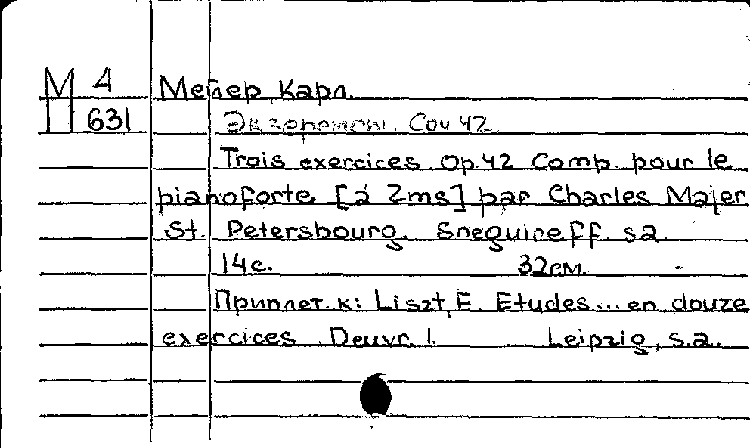 М 4 Мейер, Карл.
П 631 Экзерсисы. Соч 42
Trois exercices. Op. 42 Comp. pour le
pianoforte [à 2ms] par Charles Majer
St. Petersbourg. Sneguireff. s.a.
14с. 32см.
Приплет. к: Liszt, F. Etudes... en douze
exercices Oeuvr. 1. Leipzig, s.a.